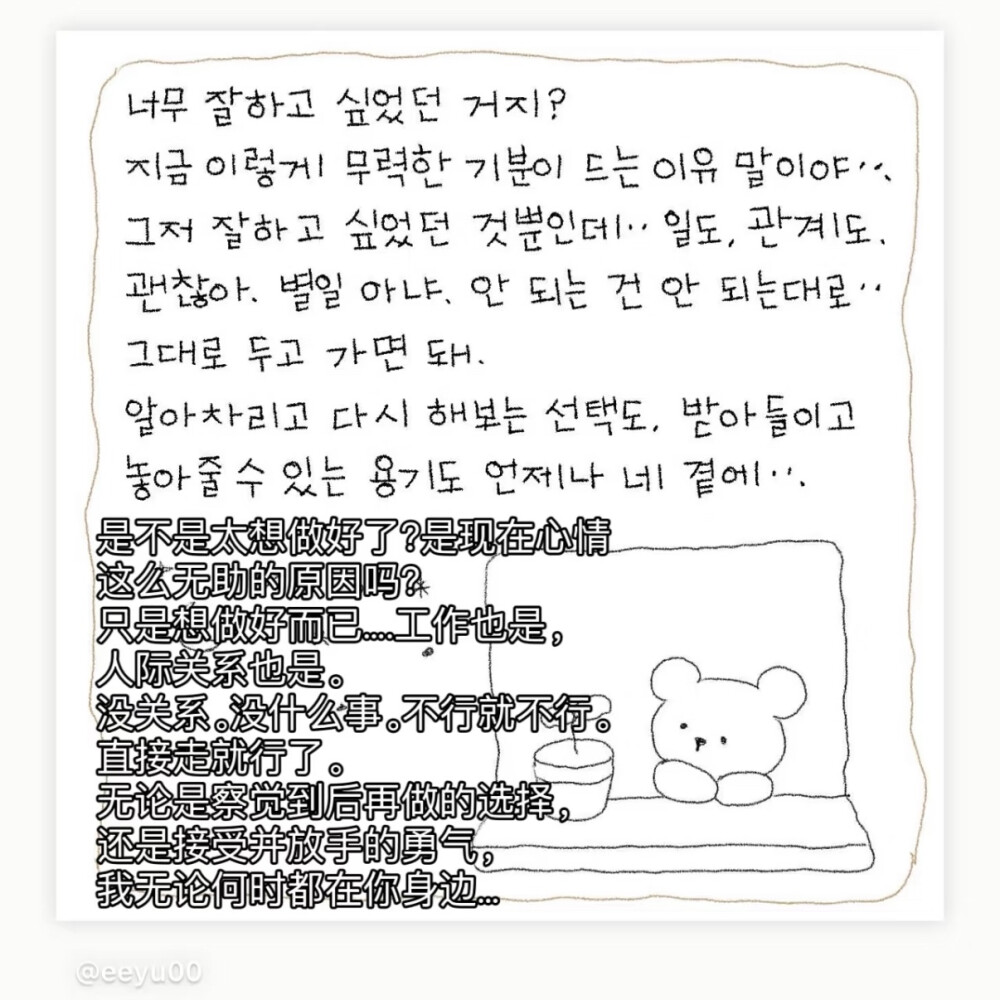 너무 잘하고 싶었던 거지?
지금 이렇게 무력한 기분이 드는 이유 말이야··.
그저 잘하고 싶었던 것뿐인데·· 일도, 관계도.
괜찮아. 별일 아냐. 안 되는 건 안 되는대로··
그대로 두고 가면 돼.
알아차리고 다시 해보는 선택도, 받아들이고
놓아줄 수 있는 용기도 언제나 네 곁에··.
是不是太想做好了?是现在心情
这么无助的原因吗?
只是想做好而已.....工作也是，
人际关系也是。
没关系。没什么事。不行就不行。
直接走就行了。
无论是察觉到后再做的选择，
还是接受并放手的勇气，
我无论何时都在你身边...
@eeyu00